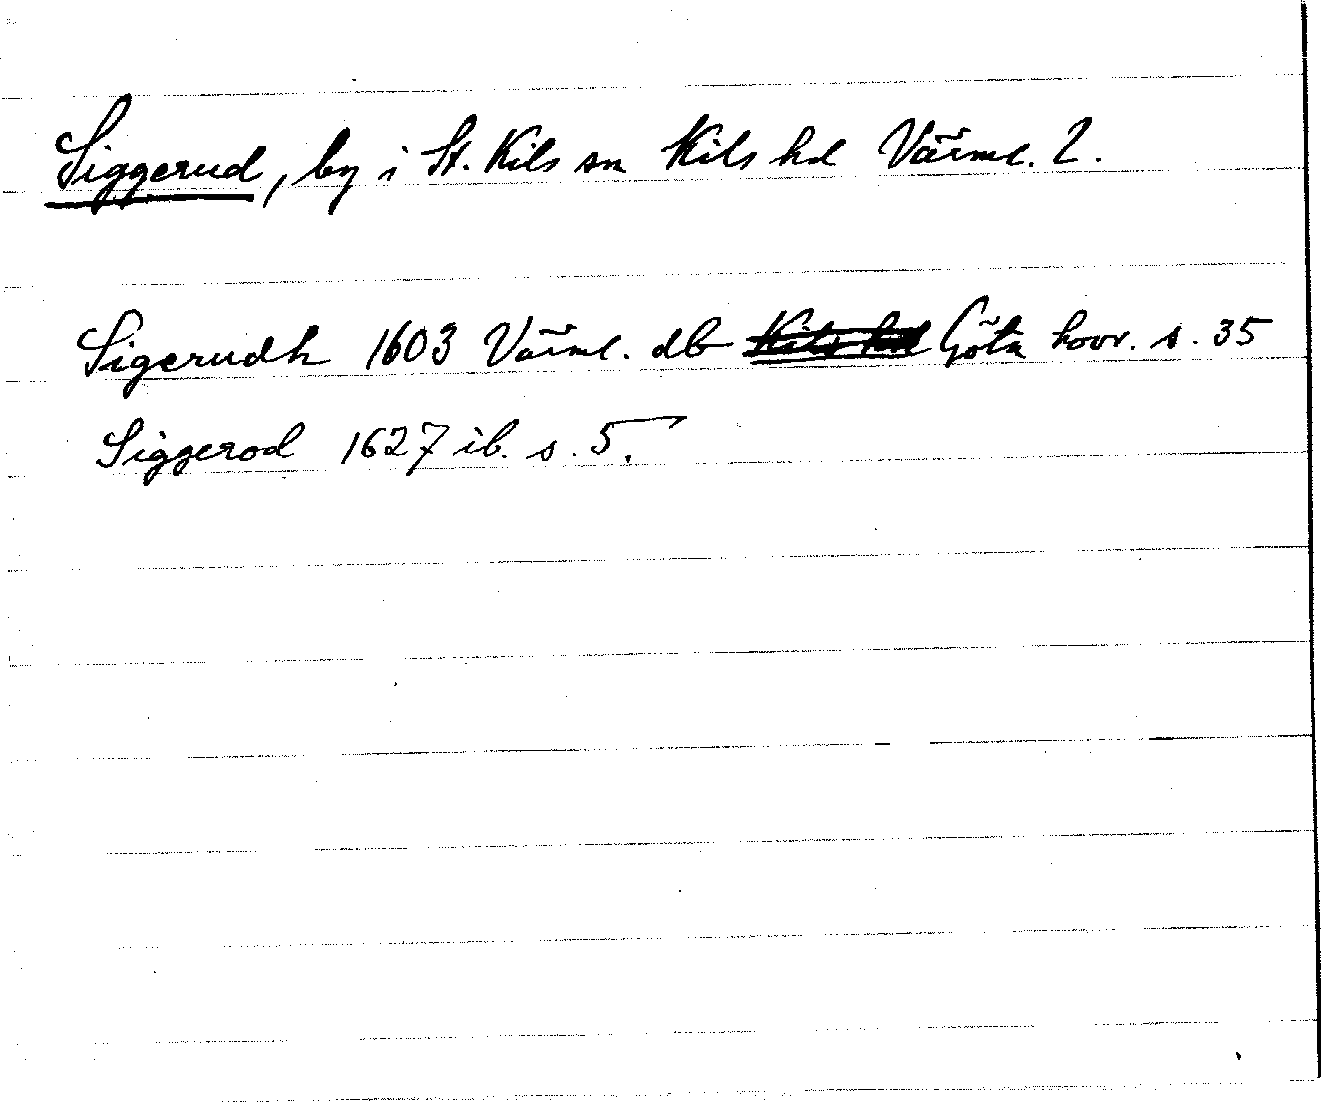 Siggerud, by i St. Kils sn Kils hd Värml. l.
Sigerudh 1603 Värml. db Kils hd Göta hovr. s. 35
Siggerod 1627 ib. s. 5.